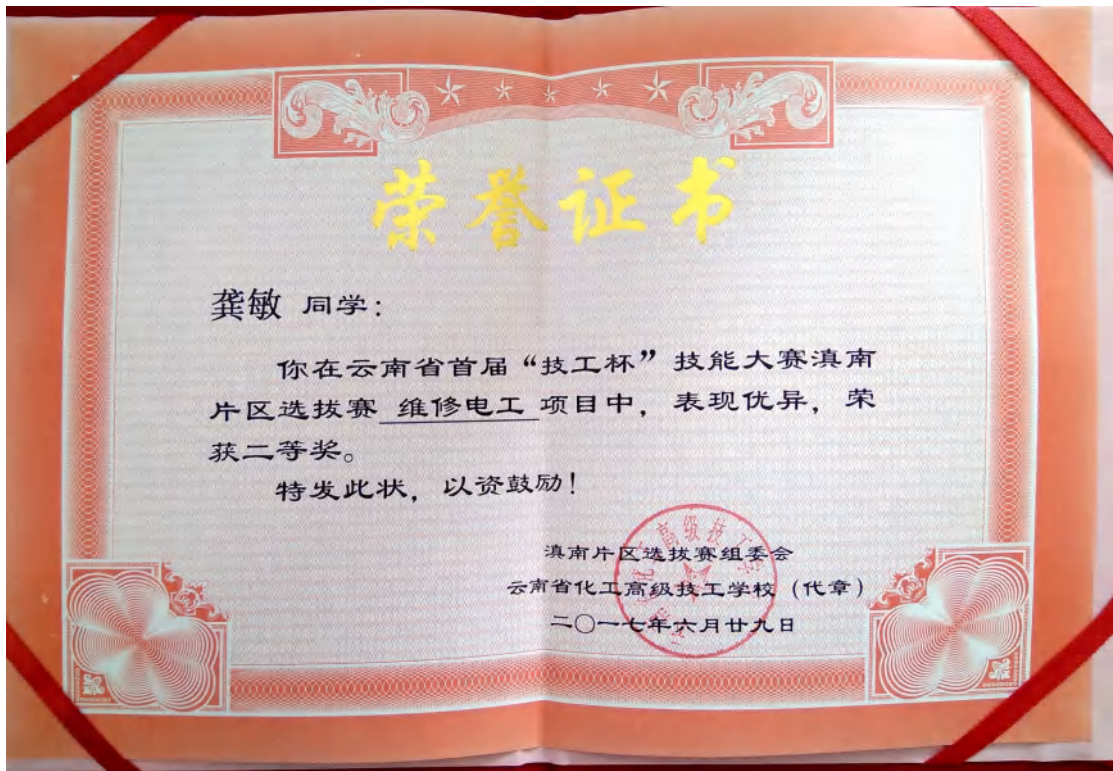 荣誉证书
龚敏 同学：
你在云南省首届“技工杯”技能大赛滇南
片区选拔赛 维修电工 项目中，表现优异，荣
获二等奖。
特发此状，以资鼓励！
滇南片区选拔赛组委会
云南省化工高级技工学校（代章）
二〇一七年六月廿九日